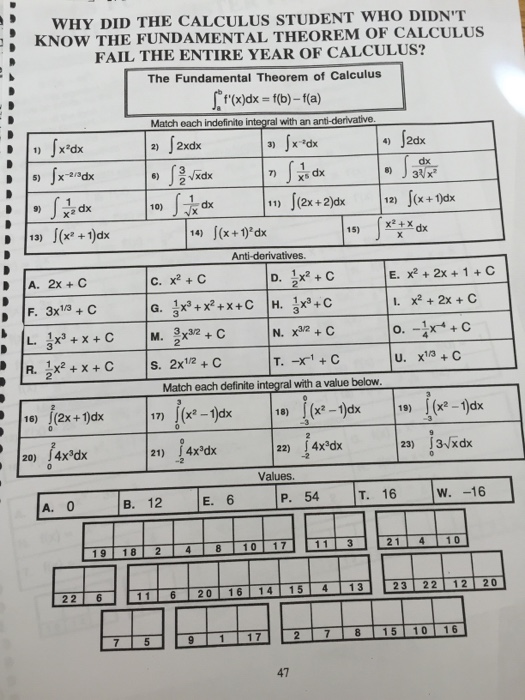 WHY DID THE CALCULUS STUDENT WHO DIDN'T
KNOW THE FUNDAMENTAL THEOREM OF CALCULUS
FAIL THE ENTIRE YEAR OF CALCULUS?
The Fundamental Theorem of Calculus
∫ₐᵇ f'(x)dx = f(b) – f(a)
Match each indefinite integral with an anti-derivative.
1) ∫x²dx 2) ∫2xdx 3) ∫x⁻²dx 4) ∫2dx
5) ∫x⁻²ᐟ³dx 6) ∫3/2 √xdx 7) ∫1/x⁵ dx 8) ∫dx/3∛x²
9) ∫1/x² dx 10) ∫1/√x dx 11) ∫(2x + 2)dx 12) ∫(x + 1)dx
13) ∫(x² + 1)dx 14) ∫(x + 1)²dx 15) ∫x² + x/x dx
Anti-derivatives.
A. 2x + C C. x² + C D. 1/2x² + C E. x² + 2x + 1 + C
F. 3x¹ᐟ³ + C G. 1/3x³ + x² + x + C H. 1/3x³ + C I. x² + 2x + C
L. 1/3x³ + x + C M. 3/2x³ᐟ² + C N. x³ᐟ² + C O. –1/4x⁻⁴ + C
R. 1/2x² + x + C S. 2x¹ᐟ² + C T. –x⁻¹ + C U. x¹ᐟ³ + C
Match each definite integral with a value below.
16) ∫₀²(2x + 1)dx 17) ∫₀³(x² – 1)dx 18) ∫₋₃⁰(x² – 1)dx 19) ∫₋₃³(x² – 1)dx
20) ∫₀²4x³dx 21) ∫₋₂⁰4x³dx 22) ∫₋₂²4x³dx 23) ∫₀⁹3√xdx
Values.
A. 0 B. 12 E. 6 P. 54 T. 16 W. –16
19 18 2 4 8 10 17 11 3 21 4 10
22 6 11 6 20 16 14 15 4 13 23 22 12 20
7 5 9 1 17 2 7 8 15 10 16
47